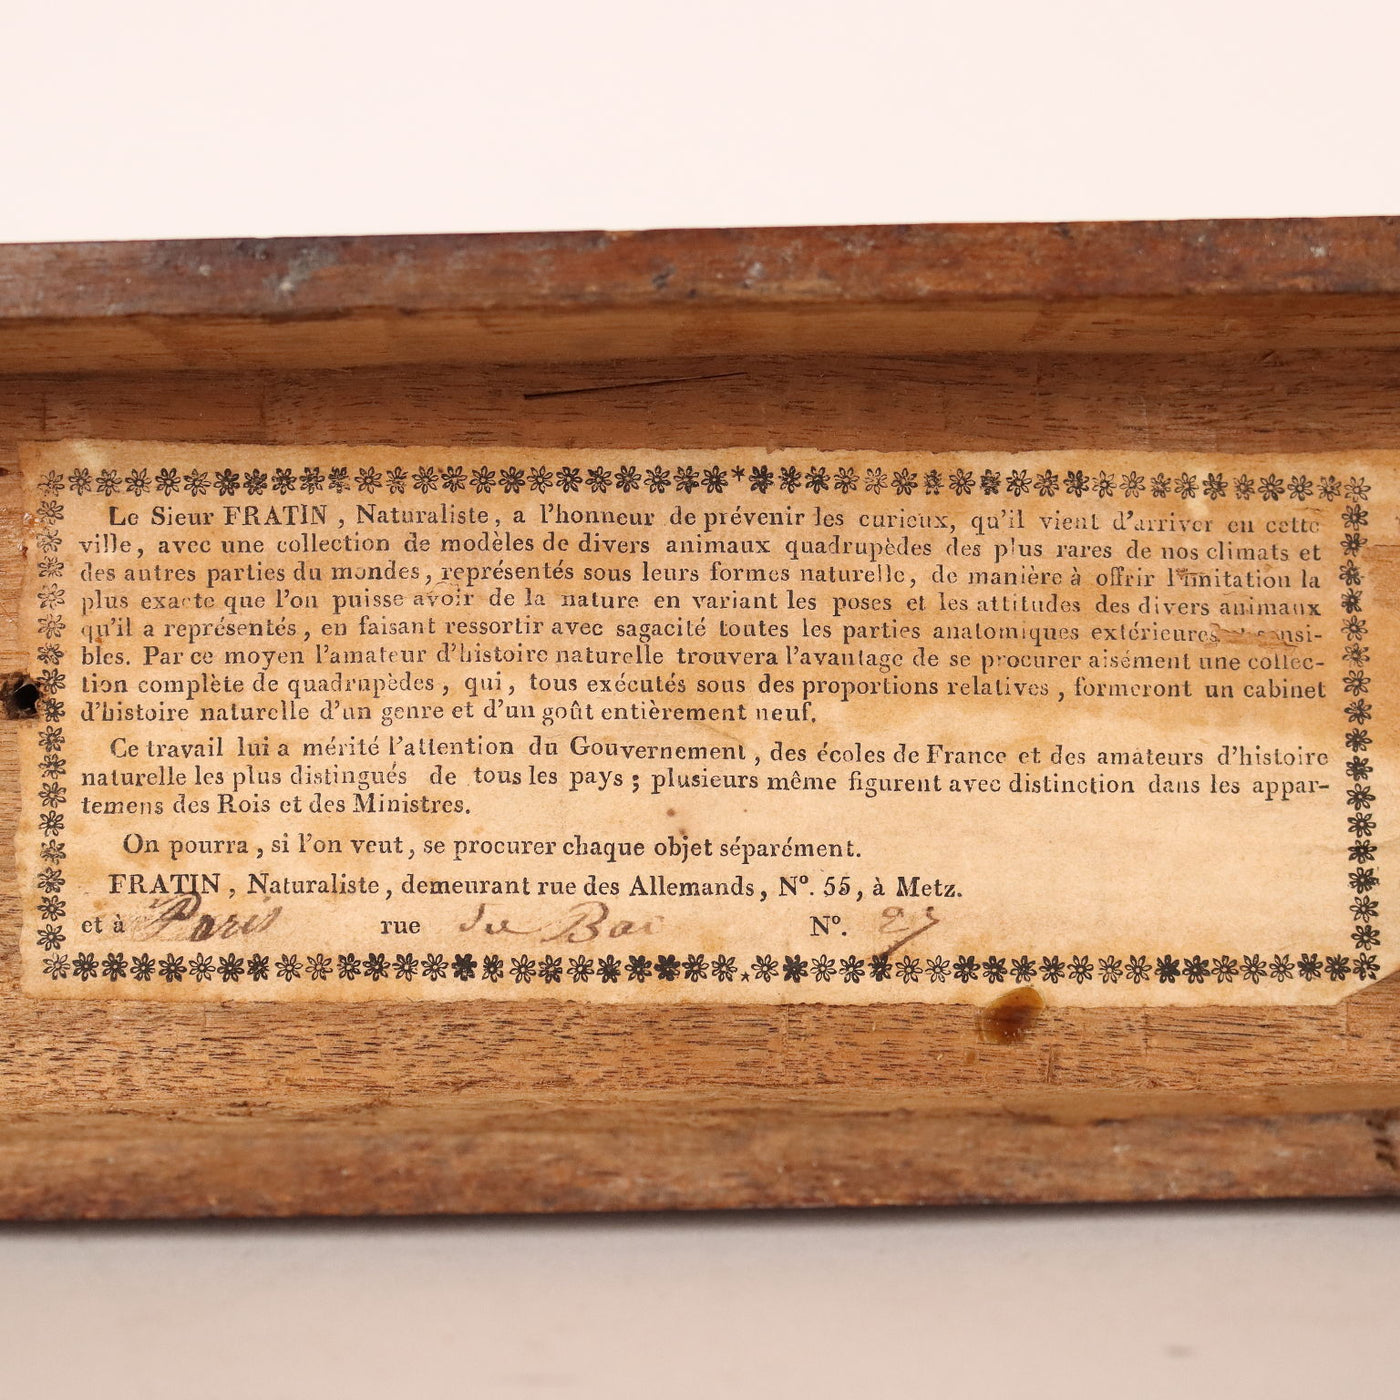 Le Sieur FRATIN, Naturaliste, a l'honneur de prévenir les curieux, qu'il vient d'arriver en cette
ville, avec une collection de modèles de divers animaux quadrupèdes des plus rares de nos climats et
des autres parties du mondes, représentés sous leurs formes naturelle, de manière à offrir l'imitation la
plus exacte que l'on puisse avoir de la nature en variant les poses et les attitudes des divers animaux
qu'il a représentés, en faisant ressortir avec sagacité toutes les parties anatomiques extérieures sensi-
bles. Par ce moyen l'amateur d'histoire naturelle trouvera l'avantage de se procurer aisément une collec-
tion complète de quadrupèdes, qui, tous exécutés sous des proportions relatives, formeront un cabinet
d'histoire naturelle d'un genre et d'un goût entièrement neuf.
Ce travail lui a mérité l'attention du Gouvernement, des écoles de France et des amateurs d'histoire
naturelle les plus distingués de tous les pays; plusieurs même figurent avec distinction dans les appar-
temens des Rois et des Ministres.
On pourra, si l'on veut, se procurer chaque objet séparément.
FRATIN, Naturaliste, demeurant rue des Allemands, N°. 55, à Metz.
et à Paris rue du Bac N°. 27